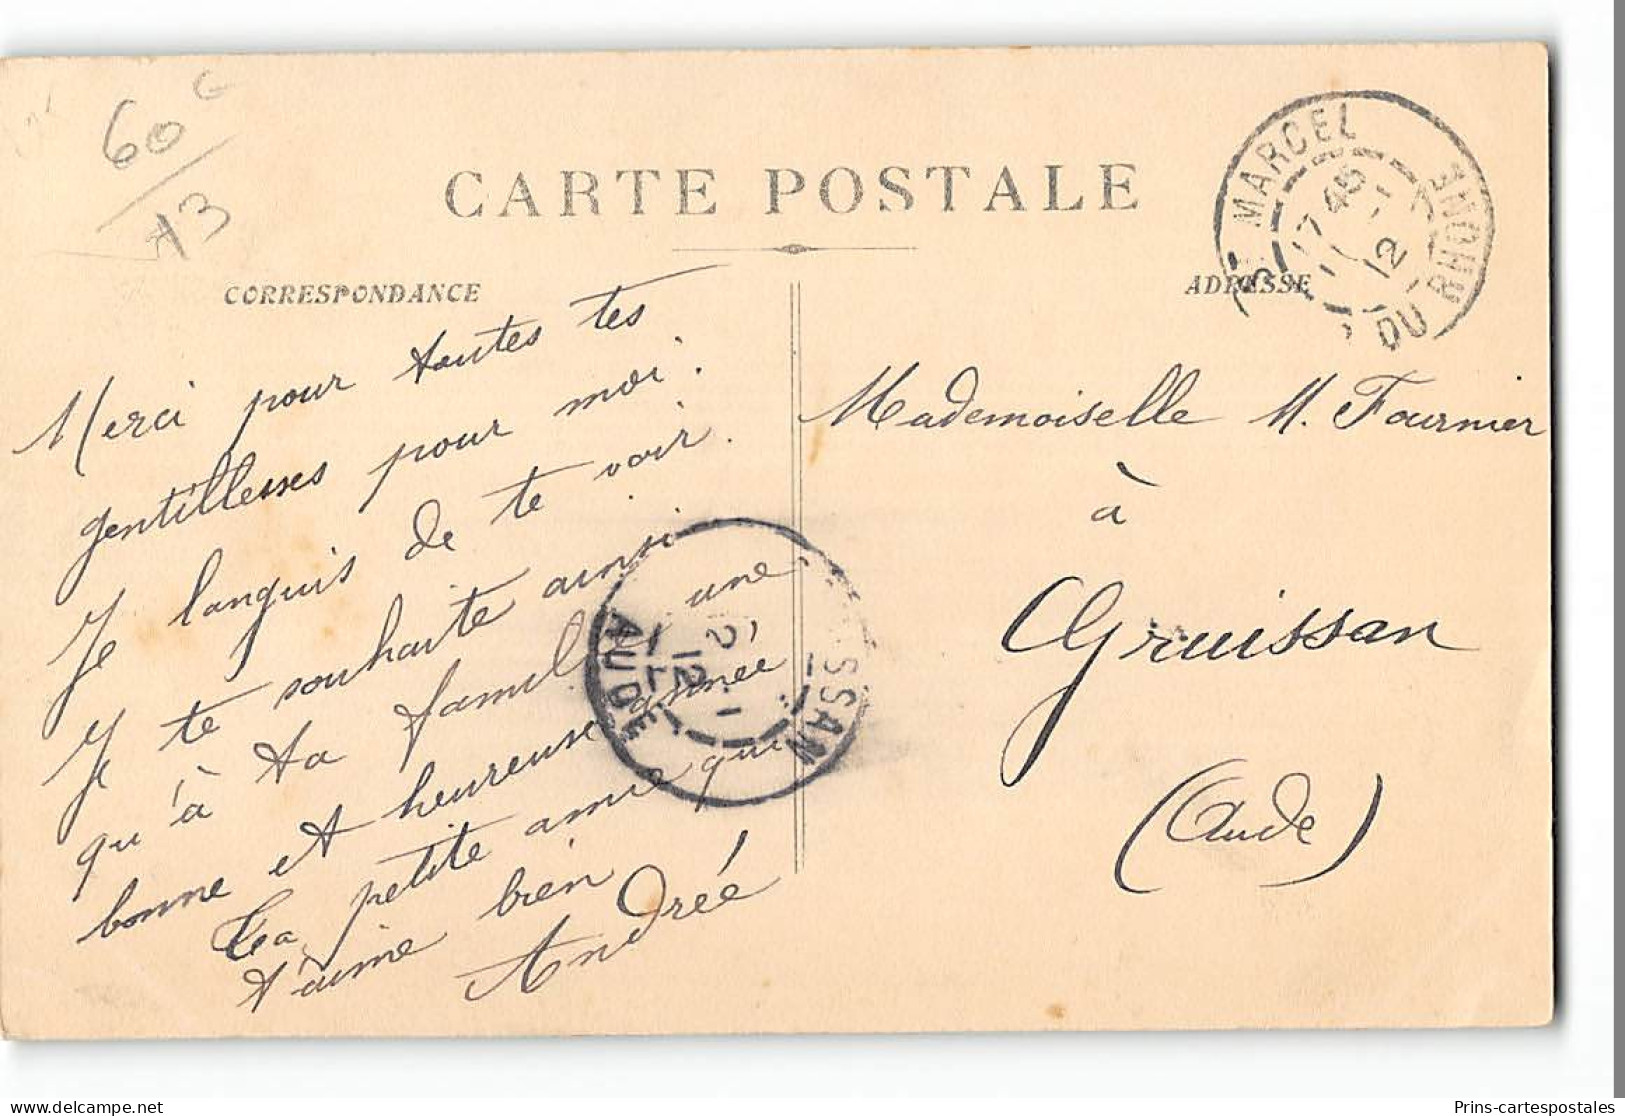 60 G
13
CARTE POSTALE
CORRESPONDANCE
ADRESSE
MARCEL
17 45
1 - 1
12
DU RHONE
Merci pour toutes tes
gentillesses pour moi.
Je languis de te voir.
Je te souhaite ainsi
qu'à ta famille une
bonne et heureuse année
Ta petite amie qui
t'aime bien
Andrée
Mademoiselle M. Fournier
à
Gruissan
(Aude)
SSAN
2 - 1
12
AUDE
delcampe.net
Prins-cartespostales